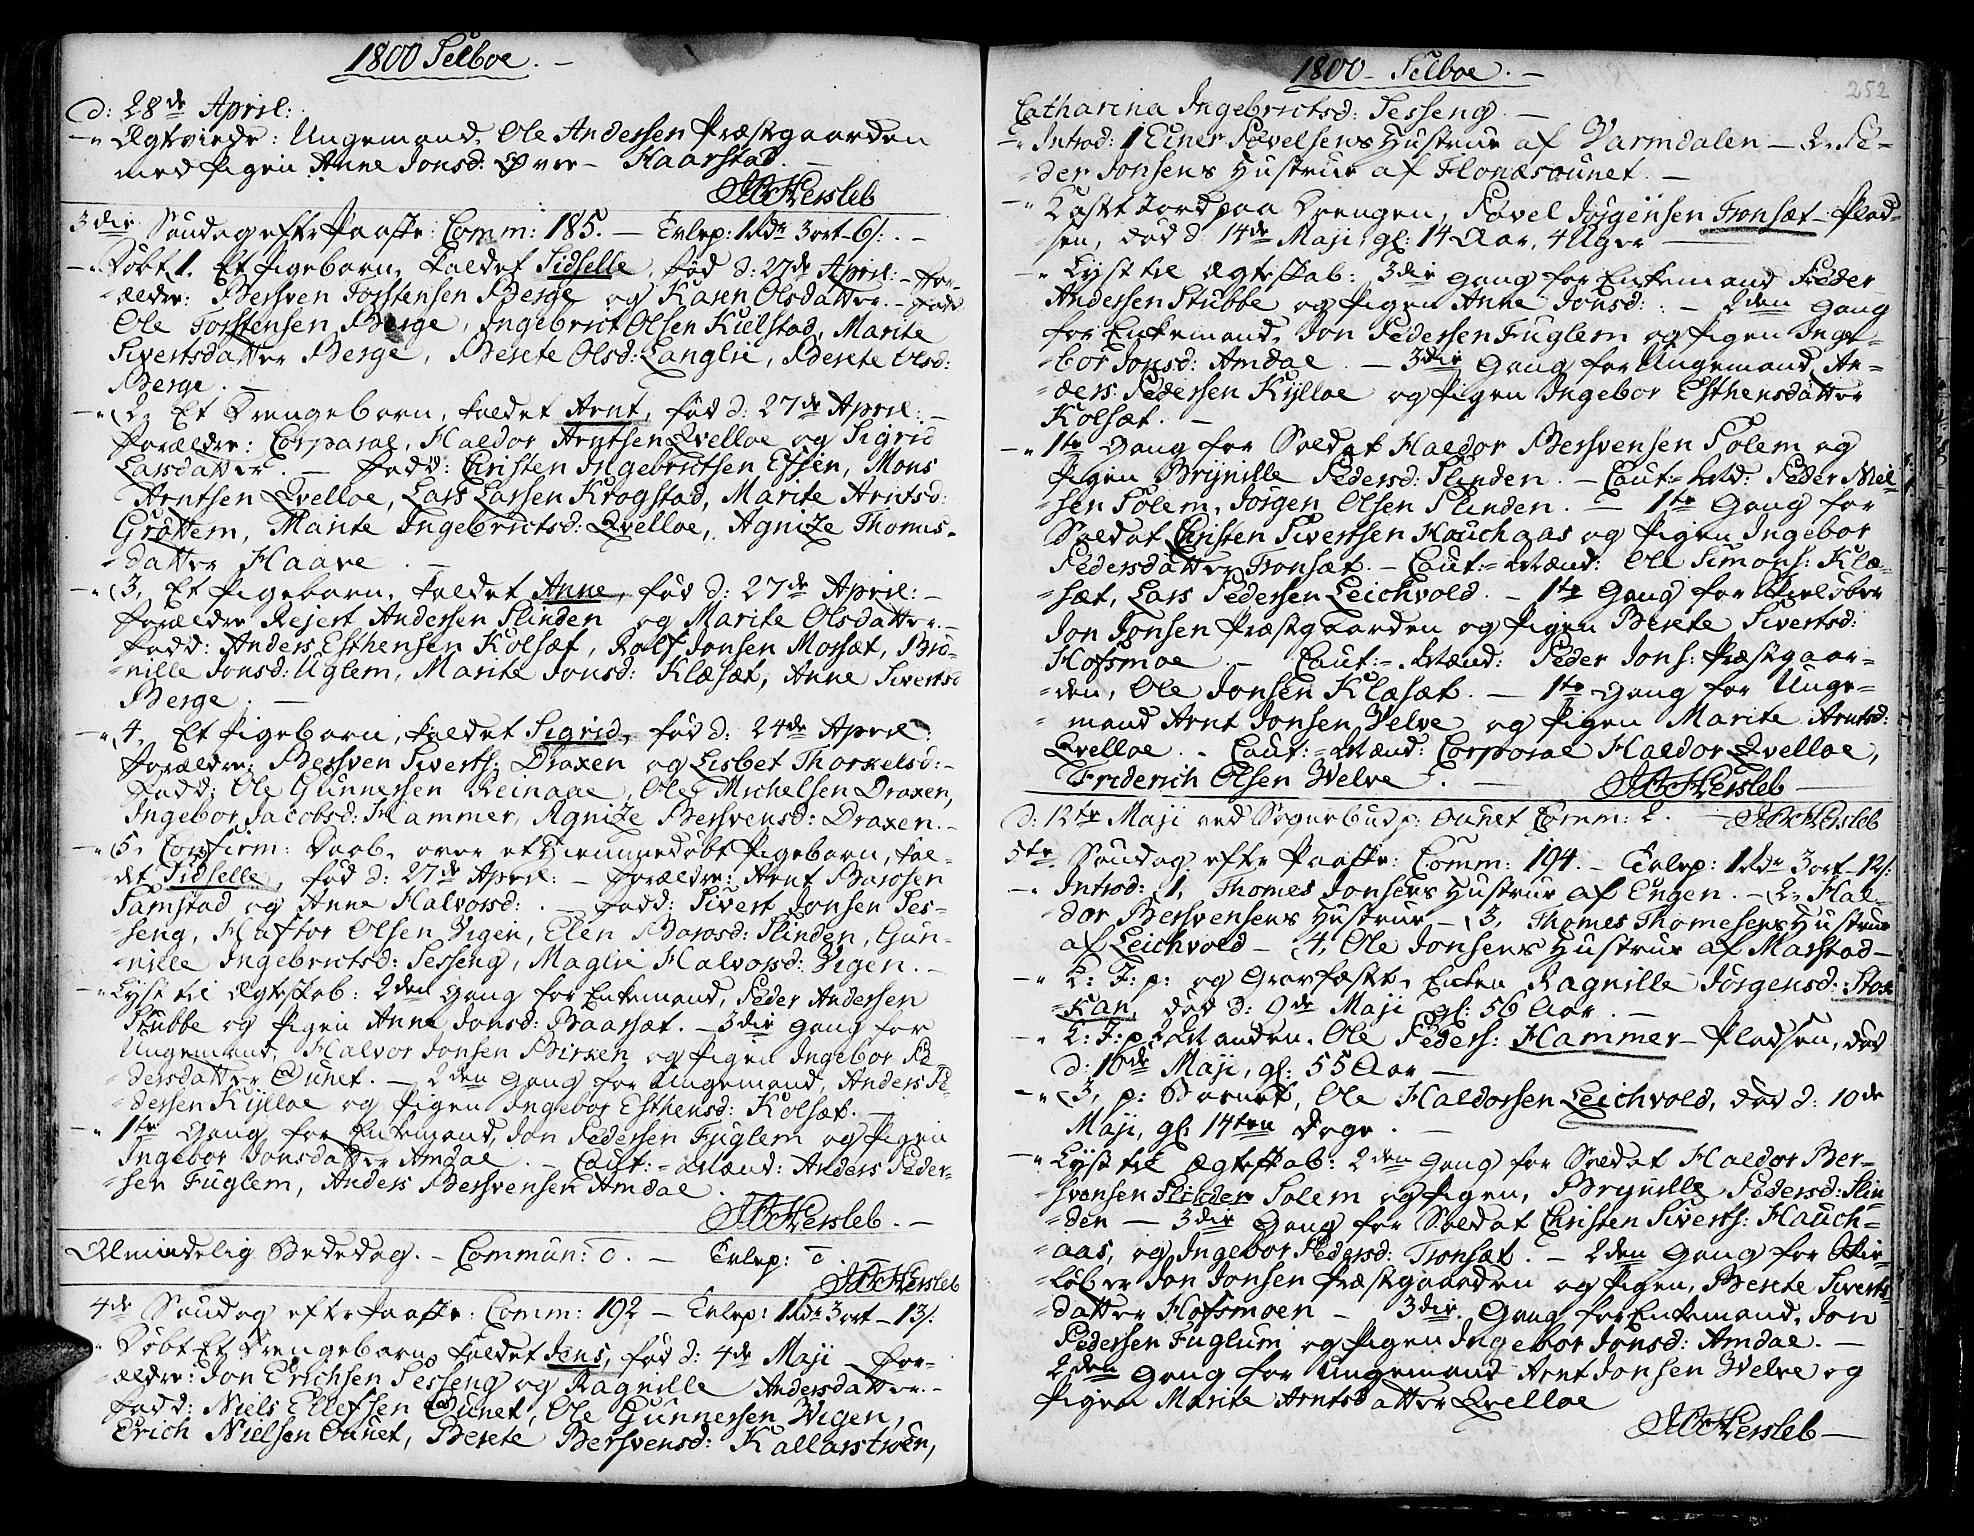 1800 Selboe. –
d: 28de April:
–" Ægtviede: Ungemand, Ole Andersen Præstgaarden
med Pigen Anne Jonsd: Øvre – Haarstad. –
Hersleb
3die Søndag eftr Paaske: Comm: 185. – Erlep: 1 Rdr 3 ort – 6 s. –
–" Døbt 1. Et Pigebarn, kaldet Sidselle, fød d: 27de April: – For-
-ældre: Bersven Torstensen Berge og Karen Olsdatter. – Fadd:
Ole Torstensen Berge, Ingebrict Olsen Kielstad, Marite
Sivertsdatter Berge, Berete Olsd: Langlie, Berete Olsd:
Berge. –
–" (2, Et Drengebarn, kaldet Arnt, fød d: 27de April: –
Forældre: Corporal, Haldor Arntsen Qvelloe og Sigrid
Larsdatter. – Fadd: Christen Ingebrictsen Essen, Mons
Arntsen Qvelloe, Lars Larsen Krogstad, Marite Arntsd:
Grøttem, Marite Ingebrictsd: Qvelloe, Agnize Thomes-
-datter Haave. –
–" (3, Et Pigebarn, kaldet Anne, fød d: 27de April: –
Forældre Rejert Andersen Slinden og Marite Olsdatter. –
Fadd: Anders Esthensen Kolsæt, Rolf Jonsen Mossæt, Brø-
-nille Jonsd: Uglem, Marite Jonsd: Klæsæt, Anne Sivertsd
Berge. –
–" 4, Et Pigebarn, kaldet Sigrid, fød d: 24de April:
Forældre: Bersven Siverts: Draxen og Lisbet Thorkelsd: –
Fadd: Ole Gunnersen Reinaae, Ole Michelsen Draxen,
Ingebor Jacobsd: Hammer, Agnize Bersvensd: Draxen. –
–" 5, Confirm: Daab, over et Hiemmedøbt Pigebarn, kal-
-det Sidselle, fød d: 27de April: – Forældre: Arnt Barosen
Samstad og Anne Halvorsd: . – Fadd: Sivert Jonsen Ses-
-seng, Haftor Olsen Vigen, Elen Barosd: Slinden, Gun-
-nille Ingebrictsd: Sesseng, Maglie Halvorsd: Vigen. –
–" Lyst til Ægteskab: 2den Gang for Enkemand, Peder Andersen
Stubbe og Pigen Anne Jonsd: Baarsæt. – 3die Gang for
Ungemand, Halvor Jonsen Birken og Pigen Ingebor Pe-
dersdatter Ounet. – 2den Gang for Ungemand, Anders Pe-
dersen Kylloe og Pigen Ingebor Esthensd: Kolsæt. –
–" 1te Gang for Enkemand, Jon Pedersen Fuglem og Pigen
Ingebor Jonsdatter Amdal. – Caut: = Mænd: Anders Peder-
-sen Fuglem, Anders Bersvensen Amdal.
Hersleb. –
Almindelig Bededag. – Commun: 0. – Erlep: 0.
Hersleb
4de Søndag eftr Paaske: Comm: 192 – Erlep: 1 Rdr 3 ort – 13 s.
" Døbt Et Drengebarn, kaldet Jens, fød d: 4de Maji – For-
-ældre: Jon Erichsen Sesseng og Ragnille Andersdatter. –
Fadd: Niels Ellefsen Ounet, Ole Gunnersen Vigen,
Erich Nielsen Ounet, Berete Bersvensd: Kallarstrøen,
1800 – Selboe. –
252
Catharina Ingebrictsd: Sesseng. –
–" Introd: 1 Einer Povelsens Hustrue af Varmdalen – 2, Pe-
-der Jonsens Hustrue af Flonæsounet. –
–" Kastet Jord paa Drengen, Povel Jørgensen Fronsæt – Plad-
-sen, død d: 14de Maji, gl: 14 Aar, 4 Uger –
–" Lyst til Ægteskab: 3die Gang for Enkemand Peder
Andersen Stubbe og Pigen Anne Jonsd: . – 2den Gang
for Enkemand, Jon Pedersen Fuglem og Pigen Inge-
-bor Jonsd: Amdal. – 3die Gang for Ungemand An-
-ders Pedersen Kylloe og Pigen Ingebor Esthensdatter
Kolsæt. –
–" 1te Gang for Soldat Haldor Bersvensen Solem og
Pigen Brynille Pedersd: Slinden. – Caut: = Md: Peder Niel-
sen Solem, Jørgen Olsen Slinden. – 1te Gang for
Soldat Christen Sivertsen Hauchaas og Pigen Ingebor
Pedersdatter Fronsæt. – Caut: = Mænd: Ole Simons: Klæ-
-sæt, Lars Pedersen Leichvold. – 1te Gang for Skieløber
Jon Jonsen Præstgaarden og Pigen Berete Sivertsd:
Hofsmoe. – Caut: = Mænd: Peder Jons: Præstgaar-
-den, Ole Jonsen Klæsæt. – 1te Gang for Unge-
-mand Arnt Jonsen Velve og Pigen Marite Arntsd:
Qvelloe. – Caut: = Mænd: Corporal Haldor Qvelloe,
Friderich Olsen Velve. –
Hersleb –
d: 12te Maji ved Sognebud p: Ounet Comm: 2. – Hersleb
5te Søndag eftr Paaske: Comm: 194. – Erlep: 1 Rdr 3 ort – 12 s:
–" Introd: 1, Thomes Jonsens Hustrue af Engen. – 2, Hal-
-dor Bersvensens Hustrue – (3, Thomes Thomesens Hustrue
af Leichvold – 4, Ole Jonsens Hustrue af Marstad –
–" K: J: p: og Gravfæstet, Enken Ragnille Jørgensd: Stok-
-kan, død d: 9de Maji gl: 56 Aar. –
–" K: J: p Manden, Ole Peders: Hammer – Pladsen, død
d: 10de Maji, gl: 55 Aar –
–" (3, p: Barnet, Ole Haldorsen Leichvold, død d: 10de
Maji, gl: 14ten Dage. –
–" Lyst til Ægteskab: 2den Gang for Soldat Haldor Ber-
-svensen Slinden Solem og Pigen, Brynille Pedersd: Slin-
-den – 3die Gang for Soldat Christen Siverts: Hauch-
-aas, og Ingebor Pedersd: Fronsæt. – 2den Gang for Skie-
-løber Jon Jonsen Præstgaarden og Pigen, Berete Siverts-
-datter Hofsmoen – 3die Gang for Enkemand, Jon
Pedersen Fuglum og Pigen Ingebor Jonsd: Amdal. –
2den Gang for Ungemand Arnt Jonsen Velve og
Pigen Marite Arntsdatter Qvelloe
Hersleb –